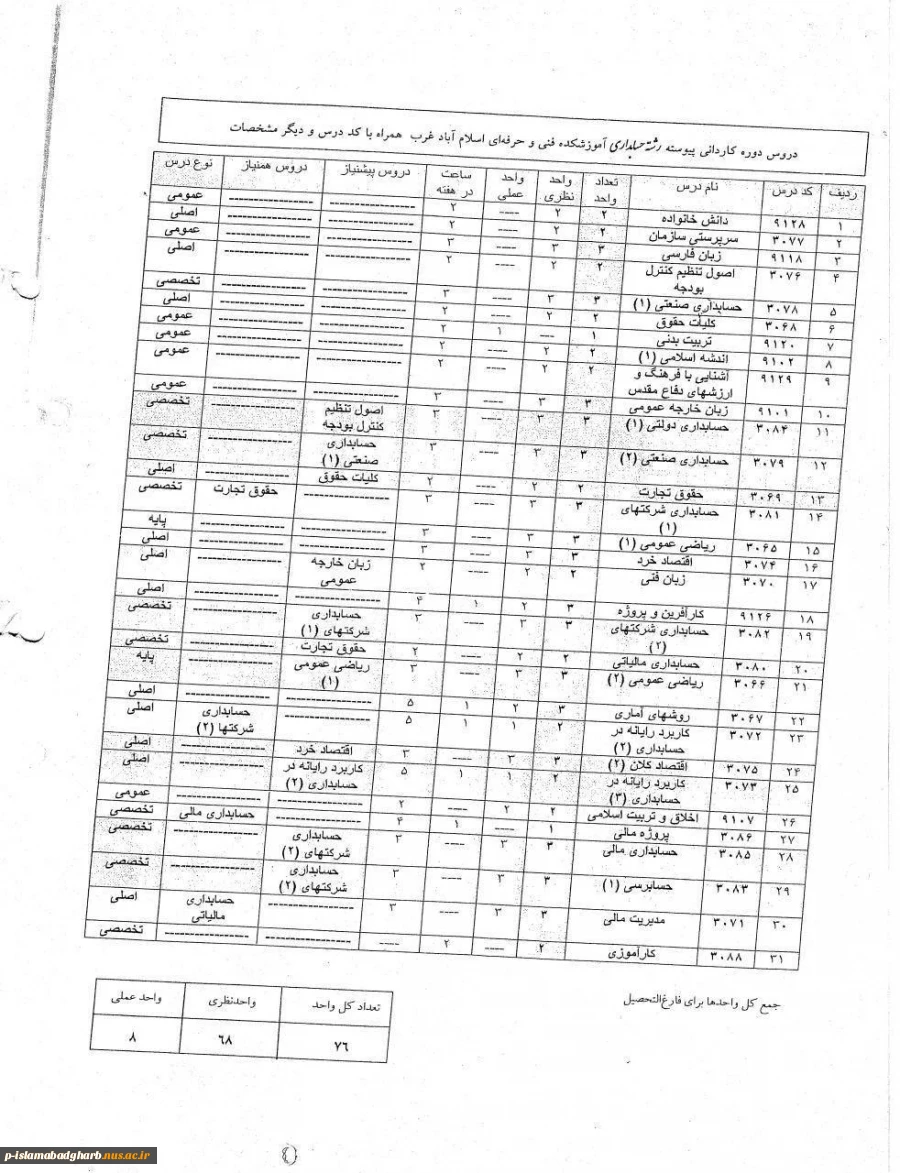 دروس دوره کاردانی پیوسته رشته حسابداری آموزشکده فنی و حرفه‌ای اسلام آباد غرب همراه با کد درس و دیگر مشخصات
ردیف کد درس نام درس تعداد واحد واحد نظری واحد عملی ساعت در هفته دروس پیشنیاز دروس همنیاز نوع درس
۱ ۹۱۲۸ دانش خانواده ۲ ۲ ---- ۲ ---------------- ---------------- عمومی
۲ ۳۰۷۷ سرپرستی سازمان ۲ ۲ ---- ۲ ---------------- ---------------- اصلی
۳ ۹۱۱۸ زبان فارسی ۳ ۳ ---- ۳ ---------------- ---------------- عمومی
۴ ۳۰۷۶ اصول تنظیم کنترل بودجه ۲ ۲ ---- ۲ ---------------- ---------------- اصلی
۵ ۳۰۷۸ حسابداری صنعتی (۱) ۳ ۳ ---- ۳ ---------------- ---------------- تخصصی
۶ ۳۰۶۸ کلیات حقوق ۲ ۲ ---- ۲ ---------------- ---------------- اصلی
۷ ۹۱۲۰ تربیت بدنی ۱ ---- ۱ ۲ ---------------- ---------------- عمومی
۸ ۹۱۰۲ اندشه اسلامی (۱) ۲ ۲ ---- ۲ ---------------- ---------------- عمومی
۹ ۹۱۲۹ آشنایی با فرهنگ و ارزشهای دفاع مقدس ۲ ۲ ---- ۲ ---------------- ---------------- عمومی
۱۰ ۹۱۰۱ زبان خارجه عمومی ۳ ۳ ---- ۳ ---------------- ---------------- عمومی
۱۱ ۳۰۸۴ حسابداری دولتی (۱) ۳ ۳ ---- ۳ اصول تنظیم کنترل بودجه ---------------- تخصصی
۱۲ ۳۰۷۹ حسابداری صنعتی (۲) ۳ ۳ ---- ۳ حسابداری صنعتی (۱) ---------------- تخصصی
۱۳ ۳۰۶۹ حقوق تجارت ۲ ۲ ---- ۲ کلیات حقوق ---------------- اصلی
۱۴ ۳۰۸۱ حسابداری شرکتهای (۱) ۳ ۳ ---- ۳ ---------------- حقوق تجارت تخصصی
۱۵ ۳۰۶۵ ریاضی عمومی (۱) ۳ ۳ ---- ۳ ---------------- ---------------- پایه
۱۶ ۳۰۷۴ اقتصاد خرد ۳ ۳ ---- ۳ ---------------- ---------------- اصلی
۱۷ ۳۰۷۰ زبان فنی ۲ ۲ ---- ۲ زبان خارجه عمومی ---------------- اصلی
۱۸ ۹۱۲۶ کارآفرین و پروژه ۳ ۲ ۱ ۴ ---------------- ---------------- اصلی
۱۹ ۳۰۸۲ حسابداری شرکتهای (۲) ۳ ۳ ---- ۳ حسابداری شرکتهای (۱) ---------------- تخصصی
۲۰ ۳۰۸۰ حسابداری مالیاتی ۲ ۲ ---- ۲ حقوق تجارت ---------------- تخصصی
۲۱ ۳۰۶۶ ریاضی عمومی (۲) ۳ ۳ ---- ۳ ریاضی عمومی (۱) ---------------- پایه
۲۲ ۳۰۶۷ روشهای آماری ۳ ۲ ۱ ۵ ---------------- ---------------- اصلی
۲۳ ۳۰۷۲ کاربرد رایانه در حسابداری (۲) ۲ ۱ ۱ ۵ ---------------- حسابداری شرکتها (۲) اصلی
۲۴ ۳۰۷۵ اقتصاد کلان (۲) ۳ ۳ ---- ۳ اقتصاد خرد ---------------- اصلی
۲۵ ۳۰۷۳ کاربرد رایانه در حسابداری (۳) ۲ ۱ ۱ ۵ کاربرد رایانه در حسابداری (۲) ---------------- اصلی
۲۶ ۹۱۰۷ اخلاق و تربیت اسلامی ۲ ۲ ---- ۲ ---------------- ---------------- عمومی
۲۷ ۳۰۸۶ پروژه مالی ۱ ---- ۱ ۴ ---------------- حسابداری مالی تخصصی
۲۸ ۳۰۸۵ حسابداری مالی ۳ ۳ ---- ۳ حسابداری شرکتهای (۲) ---------------- تخصصی
۲۹ ۳۰۸۳ حسابرسی (۱) ۳ ۳ ---- ۳ حسابداری شرکتهای (۲) ---------------- تخصصی
۳۰ ۳۰۷۱ مدیریت مالی ۳ ۳ ---- ۳ ---------------- حسابداری مالیاتی اصلی
۳۱ ۳۰۸۸ کارآموزی ۲ ---- ۲ ---- ---------------- ---------------- تخصصی
جمع کل واحدها برای فارغ‌التحصیل
تعداد کل واحد واحدنظری واحد عملی
۷۶ ۶۸ ۸
p-islamabadgharb.nus.ac.ir